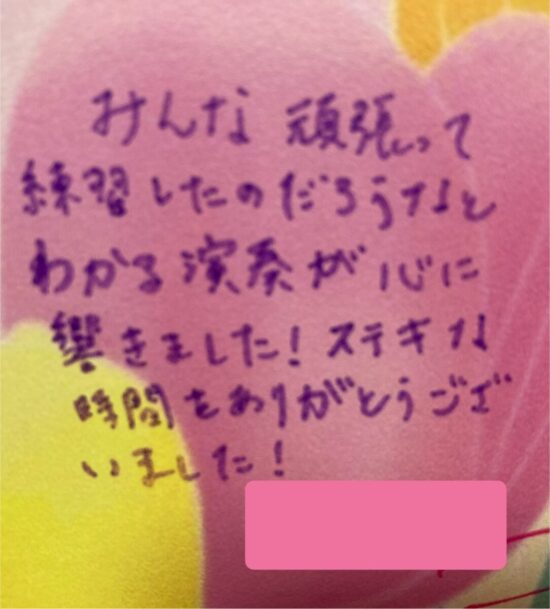 みんな 頑張って
練習したのだろうなと
わかる演奏が心に
響きました！ステキな
時間をありがとうござ
いました！